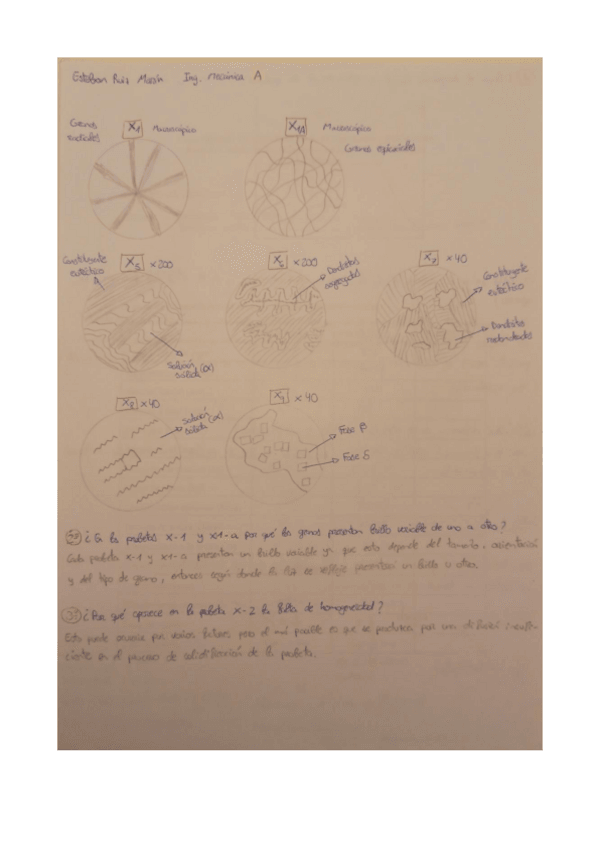 Esteban Ruiz Ing. Mecánica A
Granos radiales
X1 Macroscópico
X1A Macroscópico
Granos equiaxiales
Constituyente eutéctico
X5 x200
Solución sólida (α)
x200
Dendritas segregadas
x40
Constituyente eutéctico
Dendritas
X2 x40
Solución sólida (α)
x40
Fase β
Fase δ
¿En las probetas X-1 y X1-a por qué los granos presentan brillo variable de uno a otro?
Cada probeta X-1 y X1-a presentan un brillo variable ya que esto depende del tamaño, orientación
y del tipo de grano, entonces según donde la luz se refleje presentará un brillo u otro.
¿Por qué aparece en la probeta X-2 la falta de homogeneidad?
Esto puede ocurrir por varios factores pero el más posible es que se produzca por una difusión insufi-
ciente en el proceso de solidificación de la probeta.